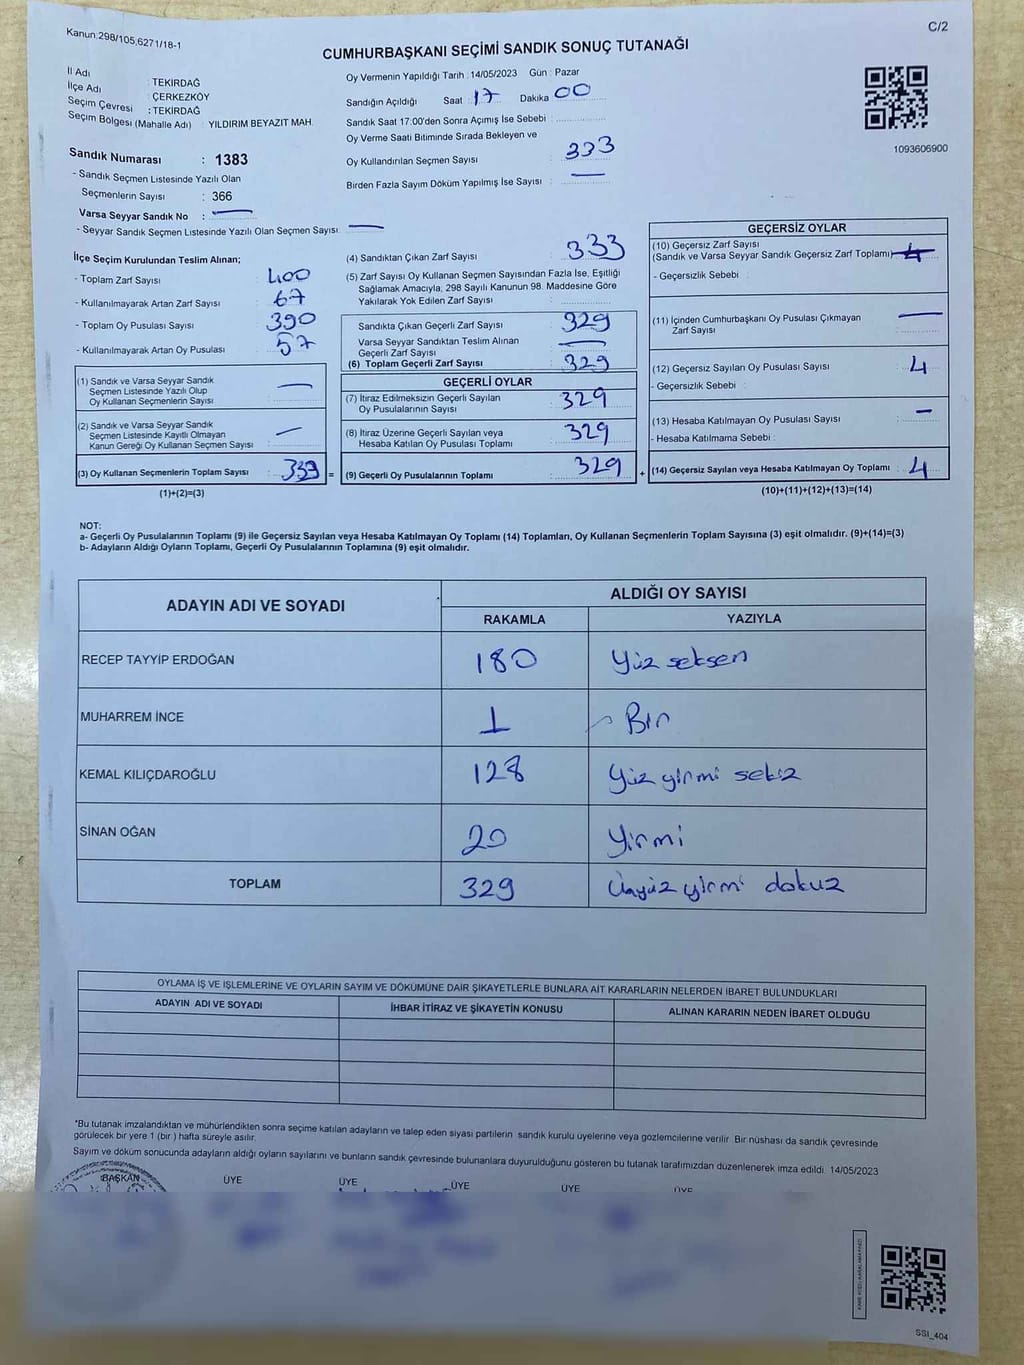 Kanun:298/105,6271/18-1
C/2
CUMHURBAŞKANI SEÇİMİ SANDIK SONUÇ TUTANAĞI
İl Adı : TEKİRDAĞ
İlçe Adı : ÇERKEZKÖY
Seçim Çevresi : TEKİRDAĞ
Seçim Bölgesi (Mahalle Adı) : YILDIRIM BEYAZIT MAH.
Sandık Numarası : 1383
- Sandık Seçmen Listesinde Yazılı Olan
Seçmenlerin Sayısı : 366
Varsa Seyyar Sandık No : —
- Seyyar Sandık Seçmen Listesinde Yazılı Olan Seçmen Sayısı: —
Oy Vermenin Yapıldığı Tarih : 14/05/2023 Gün : Pazar
Sandığın Açıldığı Saat : 17 Dakika : 00
Sandık Saat 17:00'den Sonra Açımış İse Sebebi :
Oy Verme Saati Bitiminde Sırada Bekleyen ve
Oy Kullandırılan Seçmen Sayısı : 333
Birden Fazla Sayım Döküm Yapılmış İse Sayısı : —
1093606900
İlçe Seçim Kurulundan Teslim Alınan;
- Toplam Zarf Sayısı : 400
- Kullanılmayarak Artan Zarf Sayısı : 67
- Toplam Oy Pusulası Sayısı : 390
- Kullanılmayarak Artan Oy Pusulası : 57
(1) Sandık ve Varsa Seyyar Sandık
Seçmen Listesinde Yazılı Olup
Oy Kullanan Seçmenlerin Sayısı : —
(2) Sandık ve Varsa Seyyar Sandık
Seçmen Listesinde Kayıtlı Olmayan
Kanun Gereği Oy Kullanan Seçmen Sayısı : —
(3) Oy Kullanan Seçmenlerin Toplam Sayısı : 333 =
(1)+(2)=(3)
(4) Sandıktan Çıkan Zarf Sayısı : 333
(5) Zarf Sayısı Oy Kullanan Seçmen Sayısından Fazla İse, Eşitliği
Sağlamak Amacıyla, 298 Sayılı Kanunun 98. Maddesine Göre
Yakılarak Yok Edilen Zarf Sayısı :
Sandıkta Çıkan Geçerli Zarf Sayısı : 329
Varsa Seyyar Sandıktan Teslim Alınan
Geçerli Zarf Sayısı : —
(6) Toplam Geçerli Zarf Sayısı : 329
GEÇERLİ OYLAR
(7) İtiraz Edilmeksizin Geçerli Sayılan
Oy Pusulalarının Sayısı : 329
(8) İtiraz Üzerine Geçerli Sayılan veya
Hesaba Katılan Oy Pusulası Toplamı : 329
(9) Geçerli Oy Pusulalarının Toplamı : 329 +
GEÇERSİZ OYLAR
(10) Geçersiz Zarf Sayısı
(Sandık ve Varsa Seyyar Sandık Geçersiz Zarf Toplamı) 4
- Geçersizlik Sebebi :
(11) İçinden Cumhurbaşkanı Oy Pusulası Çıkmayan
Zarf Sayısı : —
(12) Geçersiz Sayılan Oy Pusulası Sayısı : 4
- Geçersizlik Sebebi :
(13) Hesaba Katılmayan Oy Pusulası Sayısı : —
- Hesaba Katılmama Sebebi :
(14) Geçersiz Sayılan veya Hesaba Katılmayan Oy Toplamı : 4
(10)+(11)+(12)+(13)=(14)
NOT:
a- Geçerli Oy Pusulalarının Toplamı (9) ile Geçersiz Sayılan veya Hesaba Katılmayan Oy Toplamı (14) Toplamları, Oy Kullanan Seçmenlerin Toplam Sayısına (3) eşit olmalıdır. (9)+(14)=(3)
b- Adayların Aldığı Oyların Toplamı, Geçerli Oy Pusulalarının Toplamına (9) eşit olmalıdır.
ADAYIN ADI VE SOYADI
ALDIĞI OY SAYISI
RAKAMLA YAZIYLA
RECEP TAYYİP ERDOĞAN 180 Yüz seksen
MUHARREM İNCE 1 Bir
KEMAL KILIÇDAROĞLU 128 Yüz yirmi sekiz
SİNAN OĞAN 20 Yirmi
TOPLAM 329 Üçyüz yirmi dokuz
OYLAMA İŞ VE İŞLEMLERİNE VE OYLARIN SAYIM VE DÖKÜMÜNE DAİR ŞİKAYETLERLE BUNLARA AİT KARARLARIN NELERDEN İBARET BULUNDUKLARI
ADAYIN ADI VE SOYADI İHBAR İTİRAZ VE ŞİKAYETİN KONUSU ALINAN KARARIN NEDEN İBARET OLDUĞU
*Bu tutanak imzalandıktan ve mühürlendikten sonra seçime katılan adayların ve talep eden siyasi partilerin sandık kurulu üyelerine veya gözlemcilerine verilir. Bir nüshası da sandık çevresinde
görülecek bir yere 1 (bir ) hafta süreyle asılır.
Sayım ve döküm sonucunda adayların aldığı oyların sayılarını ve bunların sandık çevresinde bulunanlara duyurulduğunu gösteren bu tutanak tarafımızdan düzenlenerek imza edildi. 14/05/2023
BAŞKAN ÜYE ÜYE ÜYE ÜYE ÜYE
SSI_404